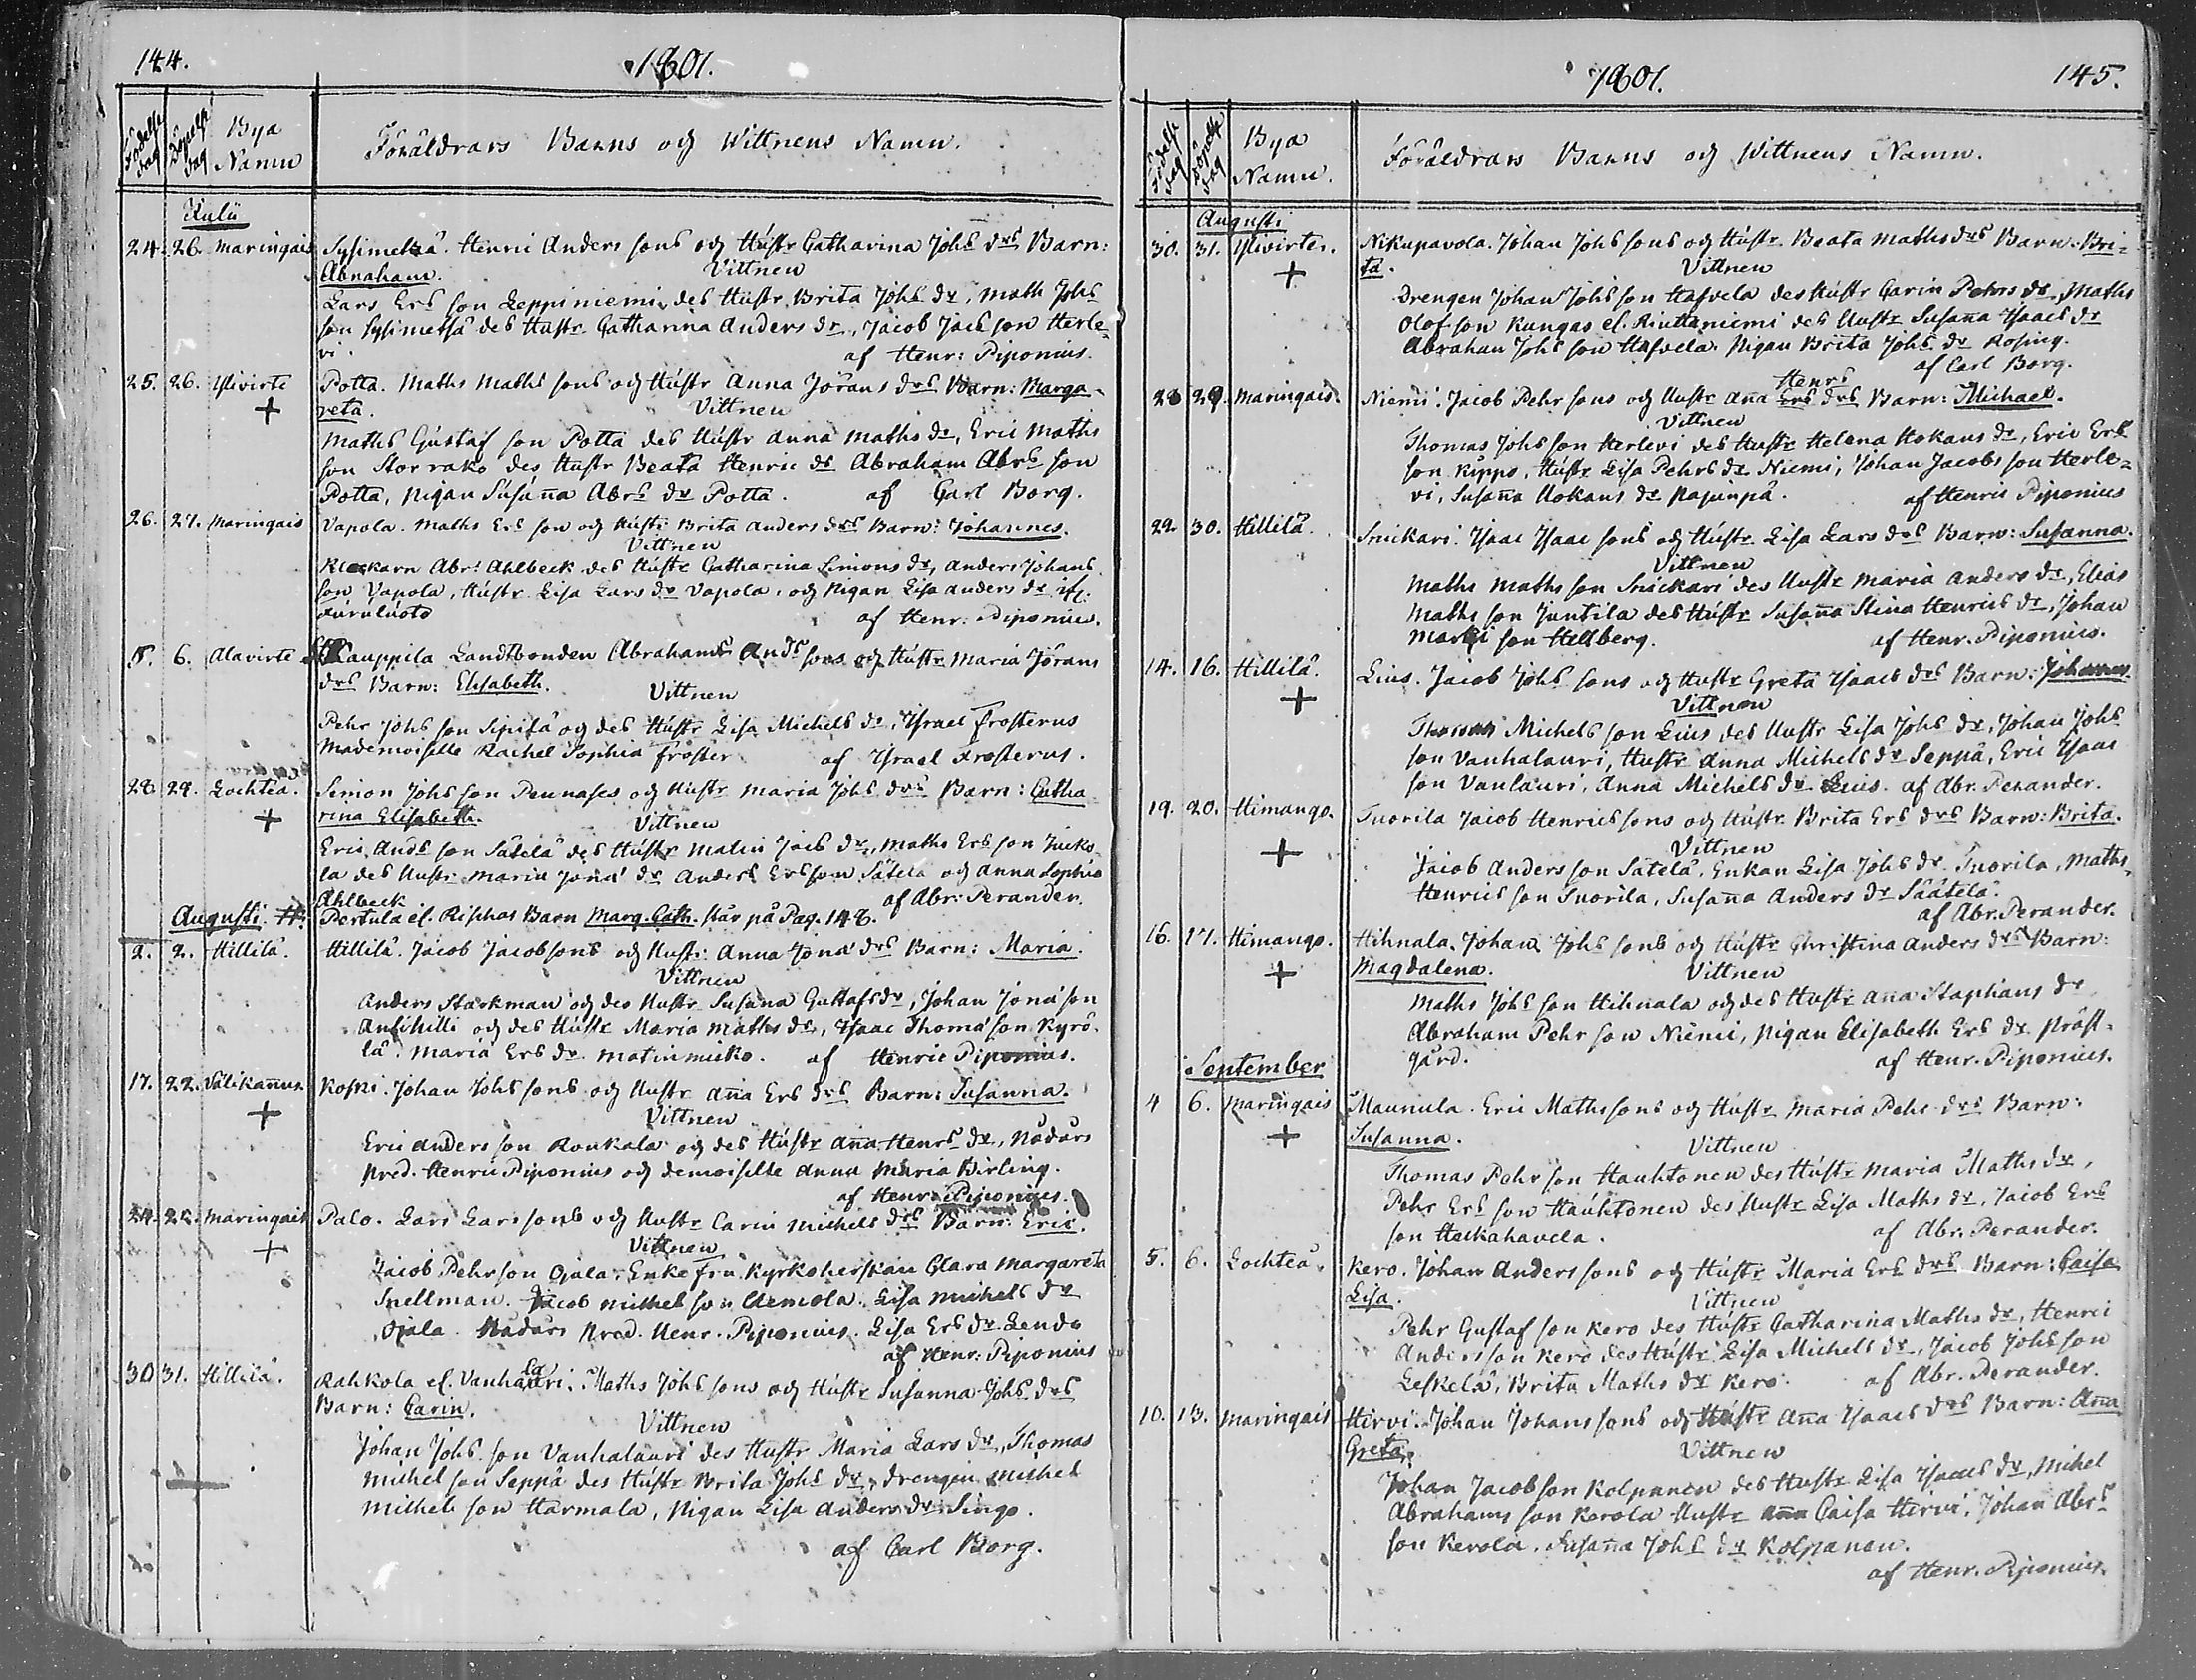 144.
1801.
Födelse dag
Döpelse dag
Bya Namn
Föräldrars Barns og Wittnens Namn.
Julii
24. 26. Maringais Sysimetsä. Henric Anders sons og Hustr Catharina Johs drs Barn:
Abraham. Vittnen
Lars Ers son Leppiniemi, des Hustr. Brita Johs dr, Math Johs
son Sysimetsä des Hustr. Catharina Anders dr, Jacob Jacs son Herle=
vi. af Henr: Piponius.
25. 26. Yliviirte Potta. Maths Maths sons og Hustr Anna Jörans drs Barn: Marga=
reta. Vittnen
Maths Gustaf son Potta des Hustr Anna Maths dr, Eric Maths
son Storrako des Hustr Beata Henric dr Abraham Abrs son
Potta, Pigan Susanna Abrs dr Potta. af Carl Borg.
26. 27. Maringais Vapola. Maths Ers son og Hustr Brita Anders drs Barn: Johannes.
Vittnen
Klockarn Abr: Ahlbeck des Hustr Catharina Simons dr, Anders Johans
son Vapola, Hustr Lisa Lars dr Vapola, og Pigan Lisa Anders dr
af Henr: Piponius.
5. 6. Alavirte Kauppila Landtbonden Abrahams Ands sons og Hustr Maria Jörans
drs Barn: Elisabeth. Vittnen
Pehr Johs son Sipilä og des Hustr Lisa Michels dr, Israel Frosterus
Mademoiselle Rachel Sophia Froster af Israel Frosterus.
28 29. Lochteå. Simon Johs son Pennases og Hustr Maria Johs drs Barn: Catha
rina Elisabeth. Vittnen
Eric Ands son Sätelä des Hustr Malin Jacs dr, Maths Ers son Juko
la des Hustr Maria Jona dr Anders Ersson Sätelä og Anna Sophia
Ahlbeck af Abr: Perander.
Augusti #: Pertula el. Rischas Barn Marg. Cath. står på Pag. 148.
2. 2. Hillilä. Hillilä. Jacob Jacobsons og Hustr: Anna Jona drs Barn: Maria.
Vittnen
Anders Starkman og des Hustr Susanna Gustafsdr, Johan Jona son
Ansihilli og des Hustr Maria Maths dr, Isaac Thoma son Kyrö=
lä: Maria Ers dr Matinmicko. af Henric Piponius.
17. 22. Välikannus. Koski. Johan Johs sons og Hustr Anna Ers drs Barn: Susanna.
Vittnen
Eric Anders son Roukala og des Hustr Anna Henrs dr, Nådårs
Pred. Henric Piponius og Demoiselle Anna Maria Birling.
af Henr: Piponius.
24. 25. Maringais Palo. Lars Lars sons og Hustr Carin Michels drs Barn: Eric.
Vittnen
Jacob Pehr son Ojala, Enkefru Kyrkoherskan Clara Margareta
Snellman. Jacob Michel son Uemola. Lisa Michels dr
Ojala. Nådårs Pred. Henr. Piponius. Lisa Ers dr. Lende
af Henr: Piponius
30 31. Hillilä. Rahkola el. Vanhalauri. Maths Johs sons og Hustr Susanna Johs. drs
Barn: Carin. Vittnen
Johan Johs. son Vanhalauri des Hustr Maria Lars dr, Thomas
Michel son Seppä des Hustr Brita Johs dr, drengen Michel
Michels son Harmala, Pigan Lisa Anders dr Singo.
af Carl Borg.
1801. 145.
Födelse dag
Döpelse dag
Bya Namn.
Föräldrars Barns og Wittnens Namn.
Augusti
30. 31. Yliviirte. Nikupavola. Johan Johs sons og Hustr Beata Maths drs Barn. Bri=
ta. Vittnen
Drengen Johan Johs son Hafvela des Hustr Carin Pehrs dr, Maths
Olof son Kungas el. Riuttaniemi des Hustr Susanna Isaacs dr
Abraham Johs son Hafvela. Pigan Brita Johs. dr Rosing.
af Carl Borg.
28 29. Maringais. Niemi. Jacob Pehr sons og Hustr Anna Henrs drs Barn: Michael.
Vittnen
Thomas Johs son Herlevi des Hustr Helena Hokans dr, Eric Ers
son Kippo, Hustr Lisa Pehrs dr Niemi, Johan Jacobs son Herle=
vi, Susanna Hokans dr Rajanpä. af Henric Piponius
22 30. Hillilä. Snickari. Isaac Isaac sons og Hustr Lisa Lars drs Barn: Susanna.
Vittnen
Maths Maths son Snickari des Hustr Maria Anders dr, Elias
Maths son Juntila des Hustr Susanna Stina Henrics dr, Johan
son Hellberg. af Henr. Piponius.
14. 16. Hillilä. Lius. Jacob Johs sons og Hustr Greta Isaacs drs Barn: Johannes.
Vittnen
Thomas Michels son Lius des Hustr Lisa Johs dr, Johan Johs
son Vanhalauri, Hustr Anna Michels dr Seppä, Eric Isaac
son Vanlauri, Anna Michels dr Lius. af Abr. Perander.
19. 20. Himango. Tuorila Jacob Henrics sons og Hustr Brita Ers drs Barn: Brita.
Vittnen
Jacob Anders son Sätelä. Enkan Lisa Johs dr Tuorila, Maths
Henrics son Tuorila, Susanna Anders dr Säätelä.
af Abr. Perander.
16. 17. Himango. Hihnala. Johan Johs sons og Hustr Christina Anders drs Barn:
Magdalena. Vittnen
Maths Johs son Hihnala og des Hustr Anna Staphans dr
Abraham Pehr son Niemi, Pigan Elisabeth Ers dr. Präst=
gård. af Henr. Piponius.
September
4 6. Maringais Maunula. Eric Maths sons og Hustr Maria Pehr drs Barn:
Susanna. Vittnen
Thomas Pehr son Hauhtonen des Hustr Maria Maths dr,
Pehr Ers son Hauhtonen des Hustr Lisa Maths dr, Jacob Ers
son Heikahavela. af Abr. Perander.
5. 6. Lochteå. Kero. Johan Anders sons og Hustr Maria Ers drs Barn: Caisa
Lisa. Vittnen
Pehr Gustaf son Kero des Hustr Catharina Maths dr, Henric
Anders son Kero des Hustr Lisa Michels dr, Jacob Johs son
Leskelä, Brita Maths dr Kero. af Abr. Perander.
10. 13. Maringais Hirvi. Johan Johans sons og Hustr Anna Isaacs drs Barn: Anna
Greta. Vittnen
Johan Jacob son Kolpanen des Hustr Lisa Isaacs dr, Michel
Abrahams son Kerola Hustr Caisa Hirvi, Johan Abrs
son Kerola. Susanna Johs dr Kolpanen.
af Henr. Piponius.